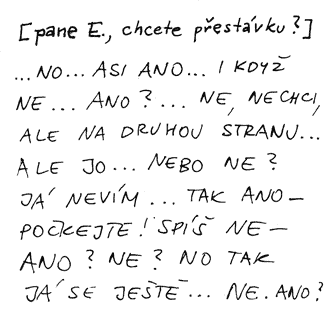 [pane E., chcete přestávku?]
...NO... ASI ANO... I KDYŽ
NE... ANO?... NE, NECHCI,
ALE NA DRUHOU STRANU...
ALE JO... NEBO NE?
JÁ NEVÍM... TAK ANO–
POČKEJTE! SPÍŠ NE–
ANO? NE? NO TAK
JÁ SE JEŠTĚ... NE. ANO?